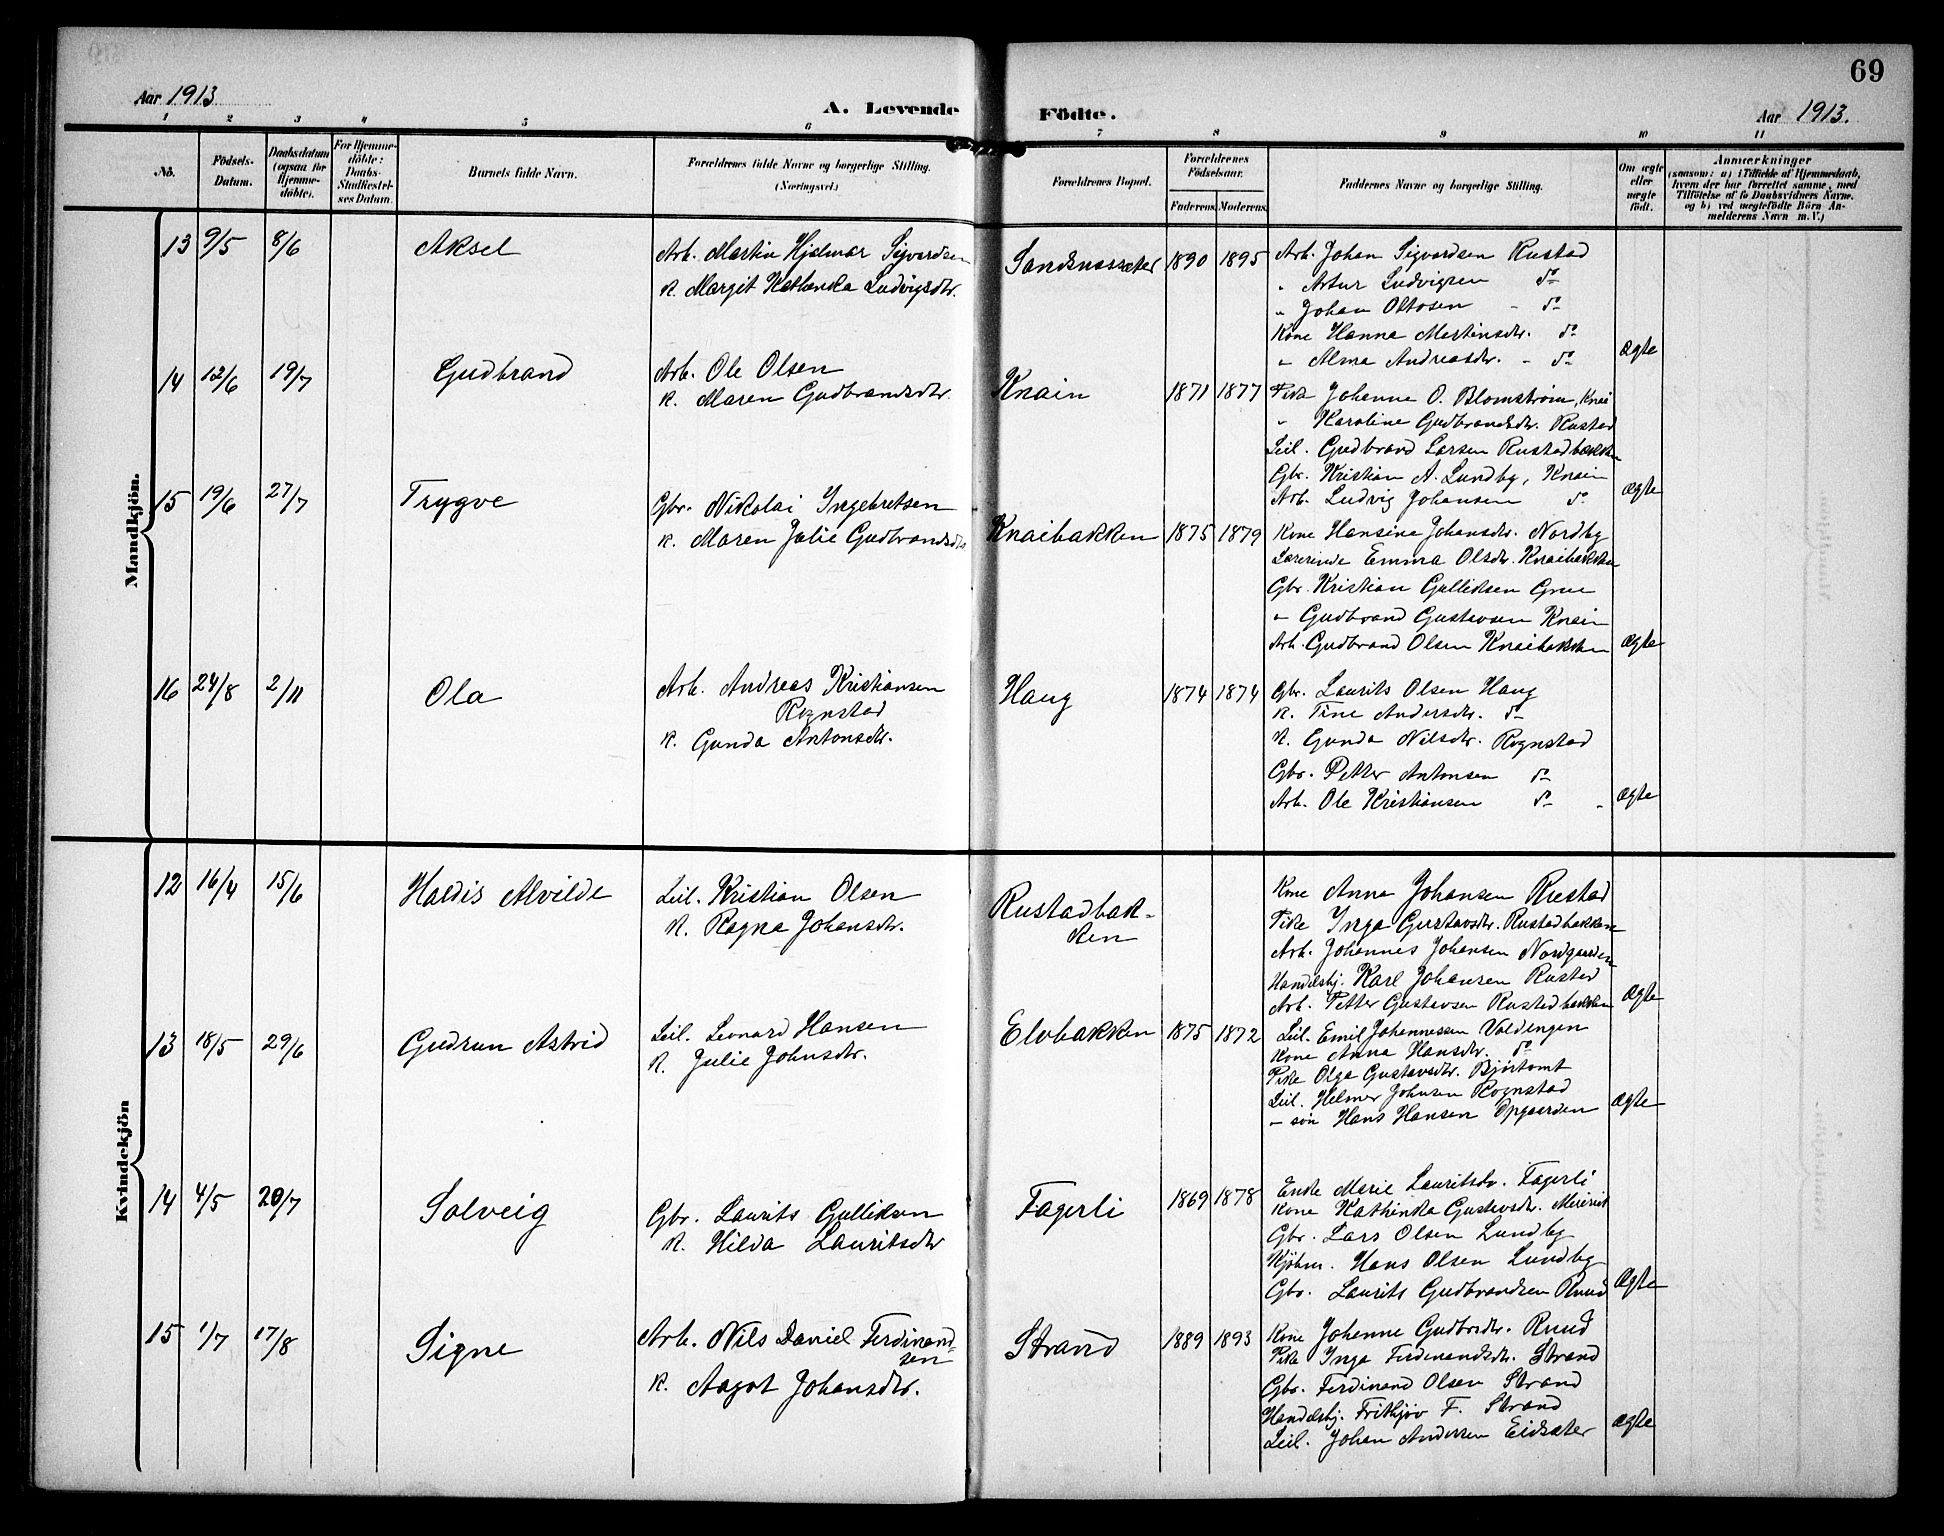 69
Aar 1913
A. Levende Födte.
Aar 1913.
1 2 3 4 5 6 7 8 9 10 11
No.
Födsels-Datum.
Daabsdatum (ogsaa for Hjemme-döbte).
For Hjemme-döbte: Daabs-Stadfæstel-ses Datum.
Barnets fulde Navn.
Forældrenes fulde Navne og borgerlige Stilling. (Næringsvei.)
Forældrenes Bopæl.
Forældrenes Födselsaar.
Faderens. Moderens.
Faddernes Navne og borgerlige Stilling.
Om ægte eller uægte födt.
Anmærkninger
(saasom: a) i Tilfælde af Hjemmedaab,
hvem der har forrettet samme, med
Tilföielse af to Daabsvidners Navne.
og b) ved uægtefödte Börn An-
melderens Navn m. V.)
Mandkjön.
13 9/5 8/6 Aksel
Arb. Martin Hjelmar Sigvardsen
K. Margit Kathenka Ludvigsdtr.
Sandsnessæter 1890 1895
Arb. Johan Sigvardsen Rustad
" Artur Ludvigsen do
" Johan Ottosen - do
Kone Hanna Martinsdtr. do
" Alma Andreasdtr. - do
Ægte
14 12/6 19/7 Gudbrand
Arb. Ole Olsen
K. Maren Gudbrandsdtr.
Knain 1871 1877
Pike Johanne O. Blomstrøm, Knai
" Karoline Gudbrandsdtr. Rustad
Leil. Gudbrand Larsen Rustadbakken
Gbr. Kristian A. Lundby, Knain
Arb. Ludvig Johansen do
Ægte
15 19/6 27/7 Trygve
Gbr. Nikolai Ingebretsen
K. Maren Julie Gudbrandsdtr
Knaibakken 1875 1879
Kone Hansine Johansdtr. Nordby
Lærerinde Emma Olsdtr. Knaibakken
Gbr. Kristian Gulliksen Grue
" Gudbrand Gustavsen Knain
Arb. Gudbrand Olsen Knaibakken
Ægte
16 24/8 2/11 Ola
Arb. Andreas Kristiansen
Rognstad
K. Gunda Antonsdtr.
Haug 1874 1874
Gbr. Laurits Olsen Haug
K. Tine Andersdtr. do
K. Gunda Nilsdtr. Rognstad
Gbr. Petter Antonsen do
Arb. Ole Kristiansen do
Ægte
Kvindekjön
12 16/4 15/6 Haldis Alvilde
Leil. Kristian Olsen
K. Ragna Johansdtr.
Rustadbak-
ken
Kone Anna Johansen Rustad
Pike Inga Gustavsdtr. Rustadbakken
Arb. Johannes Johansen Nordgaarden
Handelsbj. Karl Johansen Rustad
Arb. Petter Gustavsen Rustadbakken
Ægte
13 18/5 29/6 Gudrun Astrid
Leil. Leonard Hansen
K. Julie Johnsdtr.
Elvbakken 1875 1872
Leil. Emil Johannessen Voldengen
Kone Anna Hansdtr. do
Pike Olga Gustavsdtr. Bjørtomt
Leil. Helmer Johnsen Rognstad
- søn Hans Hansen Opgaarden
Ægte
14 4/5 20/7 Solveig
Gbr. Laurits Gulliksen
K. Hilda Lauritsdtr
Fagerli 1869 1878
Enke Marie Lauritsdtr. Fagerli
Kone Kathinka Gustavsdtr. Meieriet
Gbr. Lars Olsen Lundby
Kjøbm. Hans Olsen Lundby
Gbr. Laurits Gudbrandsen Ruud
Ægte
15 1/7 17/8 Signe
Arb. Nils Daniel Ferdinand-
sen
K. Aagot Johansdtr.
Strand 1889 1893
Kone Johanne Gudbrdtr. Ruud
Pike Inga Ferdinandsdtr. Strand
Gbr. Ferdinand Olsen Strand
Handelsbj. Fritjov F. Strand
Leil. Johan Andersen Eidsæter
Ægte